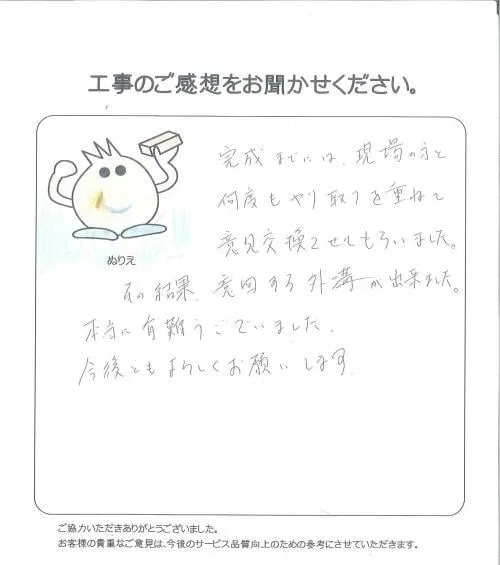 工事のご感想をお聞かせください。
完成までには、現場の方と
何度もやり取りを重ねて
意見交換させてもらいました。
ぬりえ
その結果、意図する外溝が出来ました。
本当に有難うございました。
今後ともよろしくお願いします。
ご協力いただきありがとうございました。
お客様の貴重なご意見は、今後のサービス品質向上のための参考にさせていただきます。